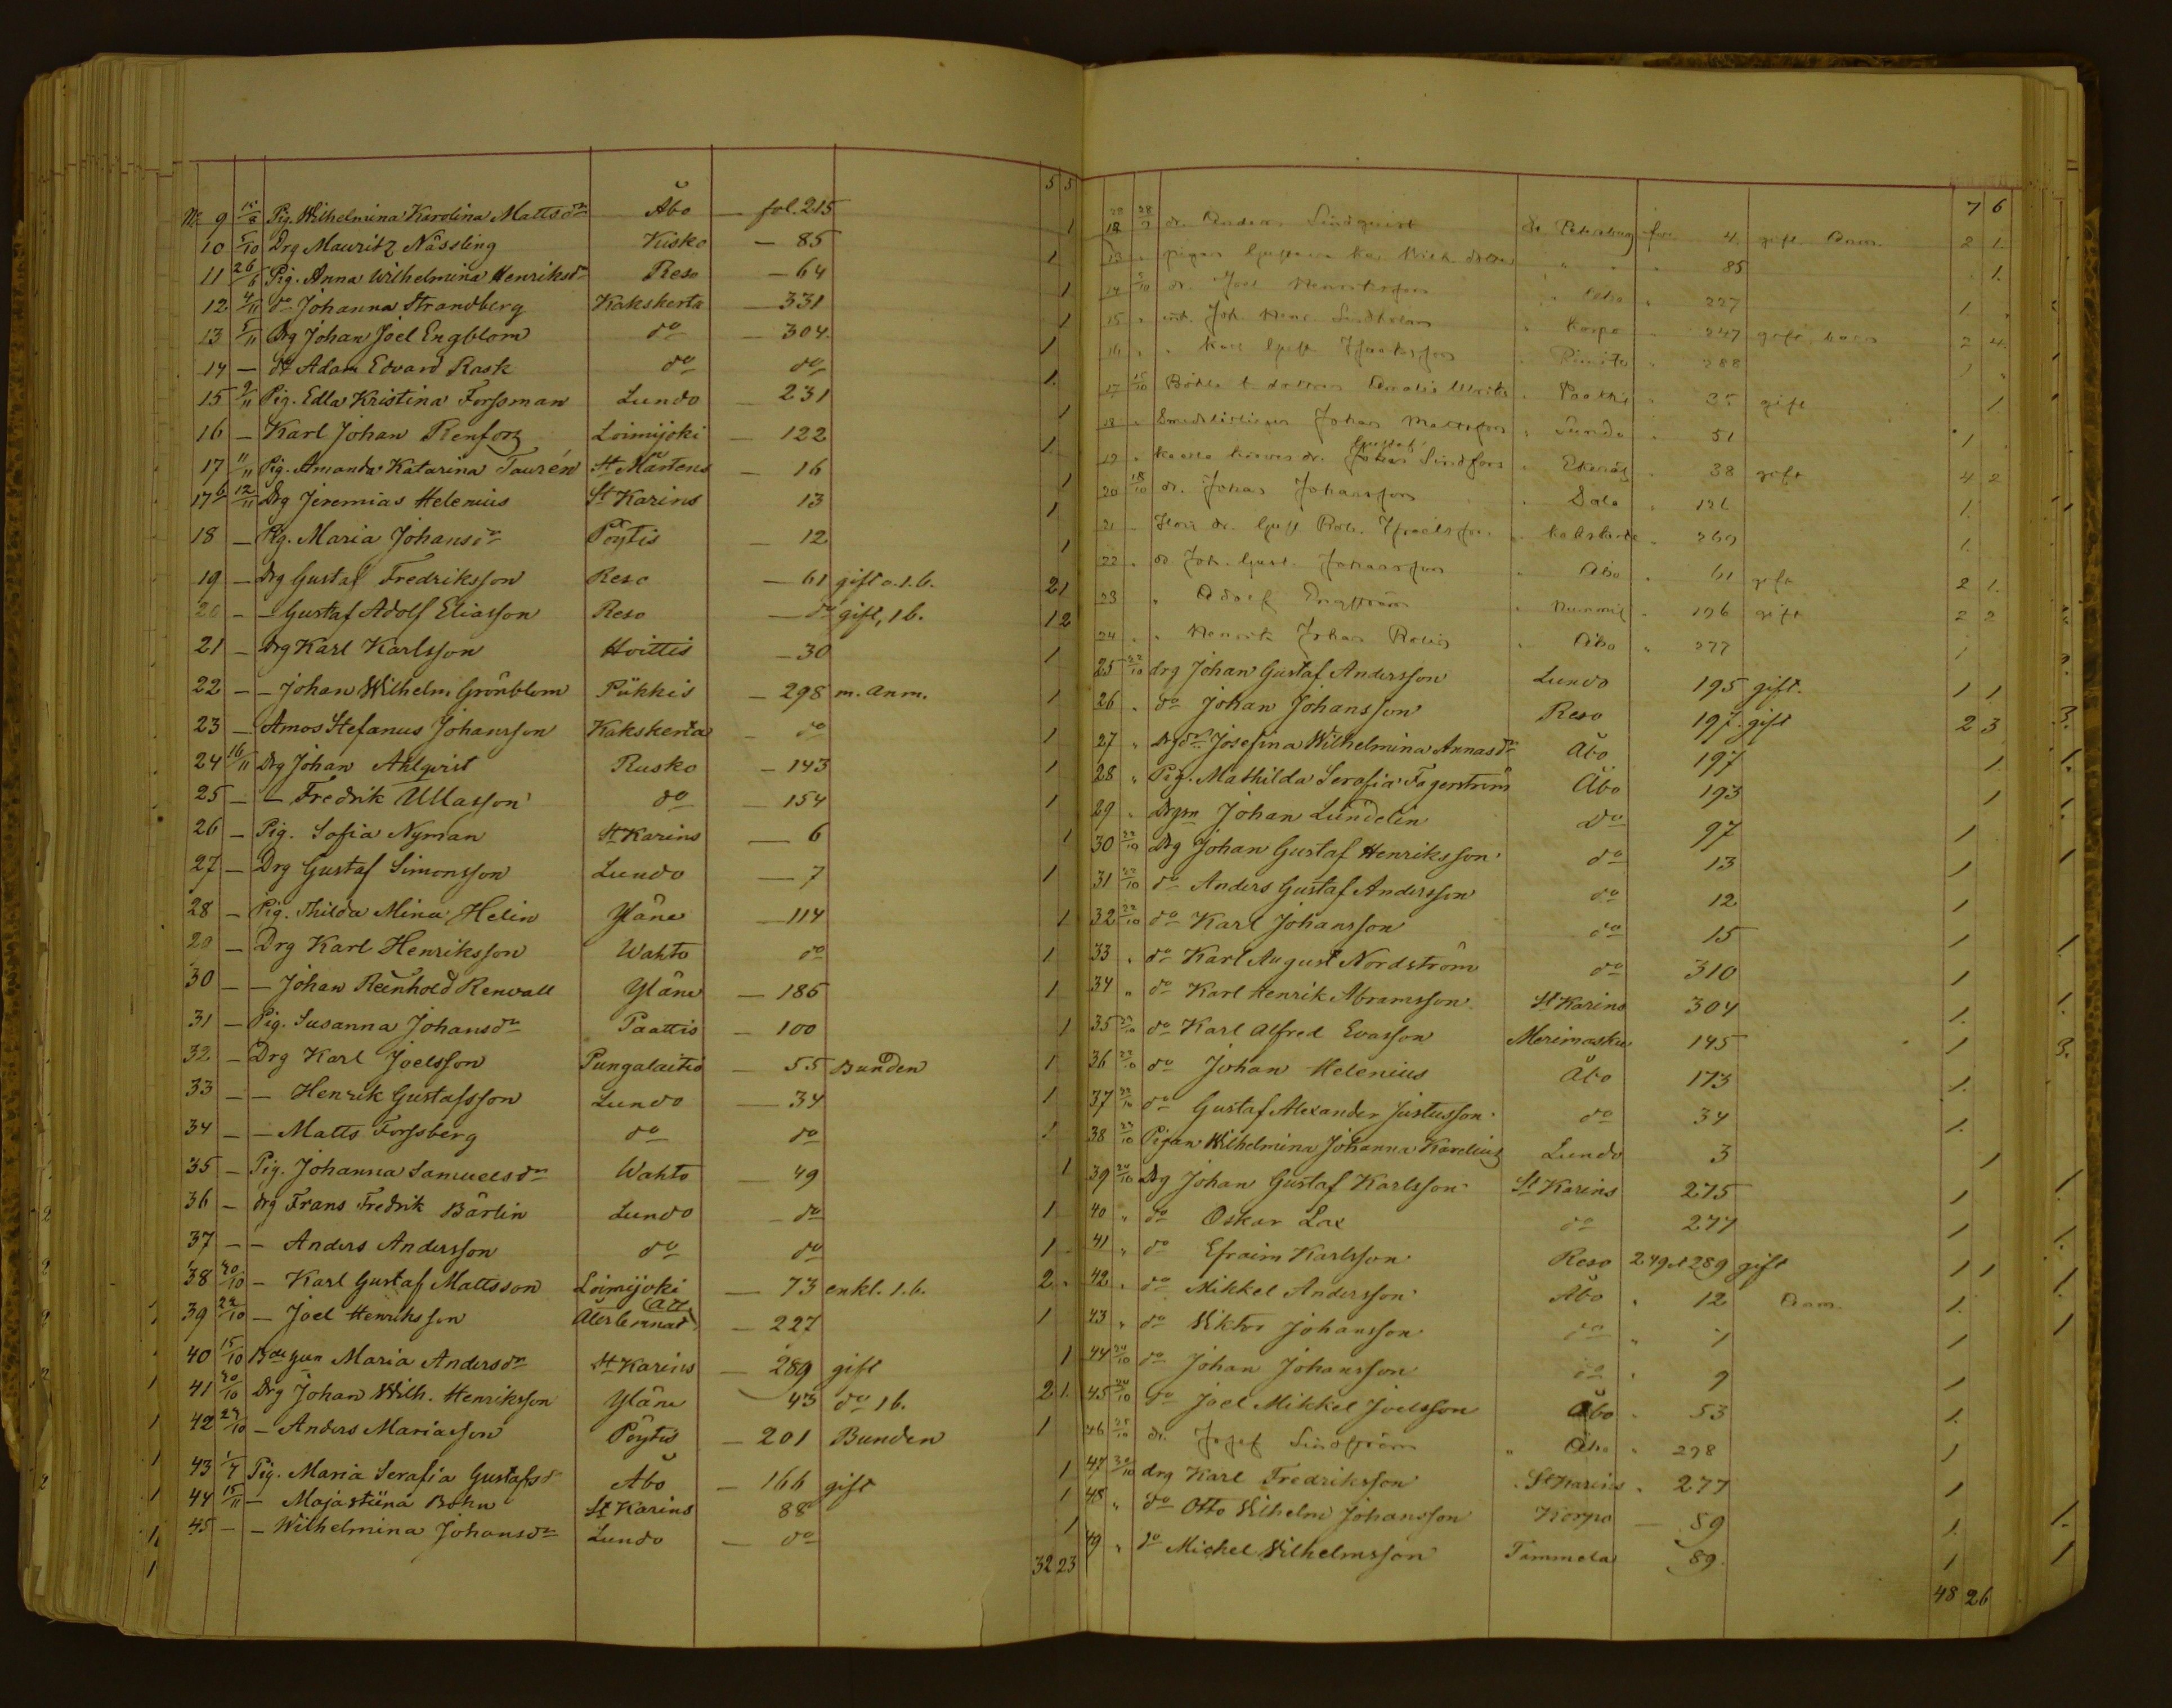 5 5
No 9 10/8 Pig. Wilhelmina Karolina Mattsdr Åbo — fol. 215 1
10 5/10 Drg Mauritz Nässling Kisko — 85 1
11 26/6 Pig. Anna Wilhelmina Henriksdr Reso — 64 1
12 4/11 do Johanna Strandberg Kakskerta — 331 1
13 5/11 Drg Johan Joel Engblom do — 304. 1
14 — do Adam Edvard Rask do do 1.
15 9/11 Pig. Edla Kristina Forssman Lundo — 231 1
16 — Karl Johan Renforz Loimijoki — 122 1.
17 11/11 Pig. Amanda Katarina Taurén St Mårtens — 16 1
17b 12/11 Drg Jeremias Helenius St Karins 13 1
18 — Pig. Maria Johansdr Pöytis — 12 1
19 — Drg Gustaf Fredriksson Reso — 61 gift o. 1. b. 2 1
20 — — Gustaf Adolf Eliasson Reso — do gift, 1 b. 1 2
21 — Drg Karl Karlsson Hvittis — 30 1
22 — — Johan Wilhelm Grönblom Pükkis — 298 m. anm. 1
23 — Amos Stefanus Johansson Kakskerta — do 1
24 16/11 Drg Johan Ahlqvist Rusko — 143 1
25 — — Fredrik Ullasson do — 154 1
26 — Pig. Sofia Nyman St Karins — 6 1
27 — Drg Gustaf Simonsson Lundo — 7 1
28 — Pig. Thilda Mina Helin Yläne — 114 1
29 — Drg Karl Henriksson Wahto do 1
30 — — Johan Reinhold Renvall Yläne — 185 1
31 — Pig. Susanna Johansdr Paattis — 100 1
32 — Drg Karl Joelsson Pungalaitio — 55 Bunden 1
33 — — Henrik Gustafsson Lundo — 34 1
34 — — Matts Forssberg do do 1
35 — Pig. Johanna Samuelsdr Wahto — 49 1
36 — drg Frans Fredrik Bärlin Lundo — do 1
37 — — Anders Andersson do do 1
38 20/10 — Karl Gustaf Mattsson Loimijoki — 73 enkl. 1. b. 2
39 22/10 — Joel Henriksson att — 227 1
40 15/10 Maria Andersdr St Karins — 289 gift 1
41 20/10 Drg Johan Wilh. Henriksson Yläne 43 do 1 b. 2 1.
42 24/10 — Anders Mariasson Pöytis — 201 Bunden 1
43 1/7 Pig. Maria Serafia Gustafsdr Åbo — 166 gift 1
44 15/11 — Maja Stiina Bohn St Karins 88 1
45 — — Wilhelmina Johansdr Lundo — do 1
32 23
7 6
12 28/9 dr. Anders Lindqvist St Petersburg 4. gift Anm. 2 1.
13 " pigan Gustava 85 1.
14 5/10 dr. Joel Henriksson " Åbo " 227 1
15 " inh. Joh. Henr. Lindholm " Korpo 247 gift 2 4.
16 " " Karl Gust. Rimito " 288 1
17 15/10 35 gift 1
18 " Johan Mattsson " Lundo " 51 1
19 " dr. Gustaf Lindfors " Ekenäs 38 gift 4 2
20 18/10 dr. Johan Johansson 126 1.
21 — dr. Gust. Rob. Israelsson " Kakskerta " 260 1.
22 " dr Joh. Gust. Johansson " Åbo " 61 gift 2 1.
23 " Adolf Engström " Nummis " 196 gift 2 2
24 " " Henrik Johan " Åbo " 277 1
25 22/10 drg Johan Gustaf Andersson Lundo 195 gift. 1 1
26 " do Johan Johansson Reso 197. gift 2 3
27 " Josefina Wilhelmina Annasdr Åbo 197 1.
28 " Pig. Mathilda Serafia Fagerström Åbo 193 1
29 " Drgm Johan Lundelin do 97 1
30 22/10 Drg Johan Gustaf Henriksson do 13 1
31 22/10 do Anders Gustaf Andersson do 12 1
32 22/10 do Karl Johansson do 15 1
33 " do Karl August Nordström do 310 1
34 " do Karl Henrik Abramsson St Karins 304 1.
35 22/10 do Karl Alfred Evasson Merimasku 145 1
36 22/10 do Johan Helenius Åbo 173 1.
37 22/10 do Gustaf Alexander Justusson do 34 1.
38 23/10 Pigan Wilhelmina Johanna Karelius Lundo 3 1
39 24/10 Drg Johan Gustaf Karlsson St Karins 275 1
40 " do Oskar Lax do 277 1
41 " do Efraim Karlsson Reso 249 o 289 gift 1 1
42 " do Mikkel Andersson Åbo " 12 Anm. 1.
43 " do Viktor Johansson do " 7 1
44 24/10 do Johan Johansson do " 9 1
45 24/10 do Joel Mikkel Joelsson Åbo " 53 1.
46 25/10 dr. Josef Lindström " Åbo " 298 1
47 30/10 drg Karl Fredriksson St Karins " 277 1
48 " do Otto Vilhelm Johansson Korpo — 89 1.
49 " do Mickel Vilhelmsson Tammela 89. 1
48 26